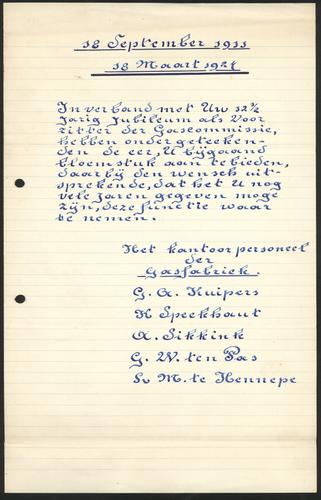 18 September 1911
18 Maart 1924
In verband met Uw 12½
Jarig Jubileum als Voor
zitter der Gascommissie,
hebben ondergeteeken-
den de eer, U bijgaand
bloemstuk aan te bieden,
daarbij den wensch uit-
sprekende, dat het U nog
vele jaren gegeven moge
zijn, deze functie waar
te nemen.
Het kantoorpersoneel
der
Gasfabriek.
G. A. Kuipers
H Speekhout
A. Sikkink
G. W. ten Pas
M. te Hennepe